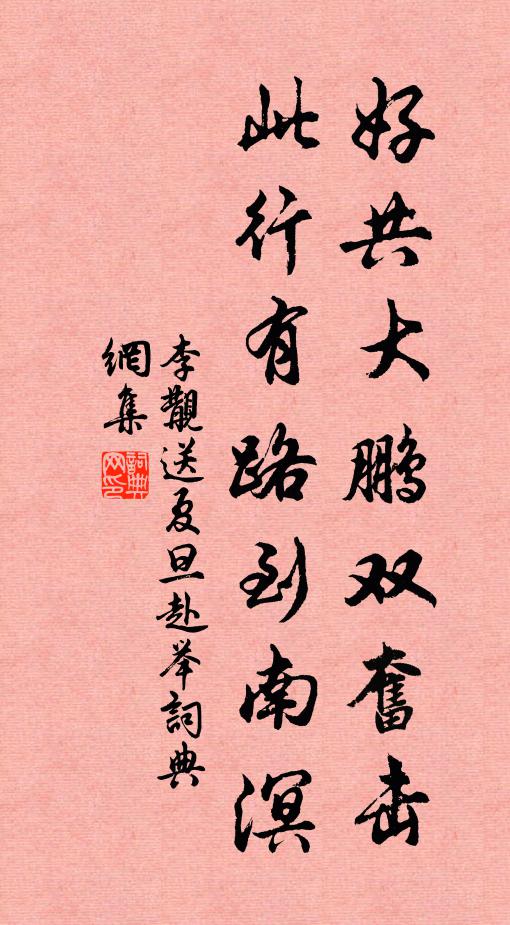 好共大鹏双奮击
此行有路到南溟
李覯送夏旦赴举詞典
網集
詞典网印